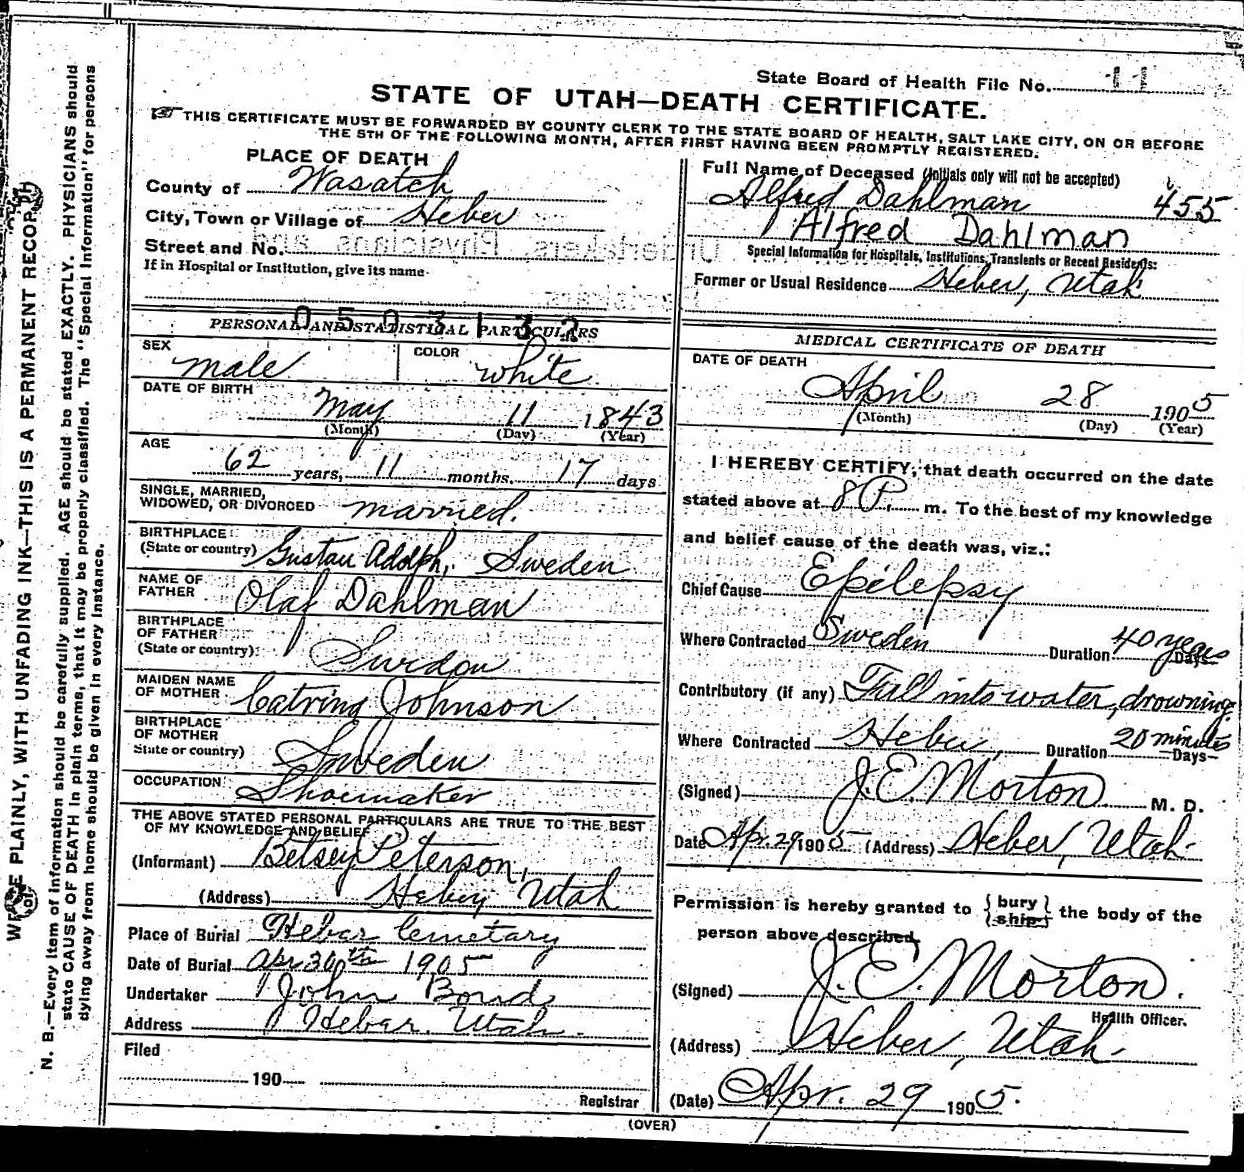 State Board of Health File No. 11
STATE OF UTAH—DEATH CERTIFICATE.
THIS CERTIFICATE MUST BE FORWARDED BY COUNTY CLERK TO THE STATE BOARD OF HEALTH, SALT LAKE CITY, ON OR BEFORE
THE 5TH OF THE FOLLOWING MONTH, AFTER FIRST HAVING BEEN PROMPTLY REGISTERED.
PLACE OF DEATH
County of Wasatch
City, Town or Village of Heber
Street and No.
If in Hospital or Institution, give its name
0503133
PERSONAL AND STATISTICAL PARTICULARS
SEX male COLOR white
DATE OF BIRTH
May 11 1843
(Month) (Day) (Year)
AGE
62 years, 11 months, 17 days
SINGLE, MARRIED,
WIDOWED, OR DIVORCED married.
BIRTHPLACE
(State or country) Gustau Adolph, Sweden
NAME OF
FATHER Olaf Dahlman
BIRTHPLACE
OF FATHER
(State or country) Swedon
MAIDEN NAME
OF MOTHER Catrina Johnson
BIRTHPLACE
OF MOTHER
State or country) Sweden
OCCUPATION Shoemaker
THE ABOVE STATED PERSONAL PARTICULARS ARE TRUE TO THE BEST
OF MY KNOWLEDGE AND BELIEF
(Informant) Betsey Peterson,
(Address) Heber, Utah
Place of Burial Heber Cemetary
Date of Burial Apr 30th 1905
Undertaker John Bond
Address Heber. Utah.
Filed
190
Registrar
Full Name of Deceased (Initials only will not be accepted)
Alfred Dahlman 455
Alfred Dahlman
Special Information for Hospitals, Institutions, Transients or Recent Residents:
Former or Usual Residence Heber, Utah
MEDICAL CERTIFICATE OF DEATH
DATE OF DEATH
April 28 1905
(Month) (Day) (Year)
I HEREBY CERTIFY, that death occurred on the date
stated above at 8 P. m. To the best of my knowledge
and belief cause of the death was, viz.:
Chief Cause Epilepsy
Where Contracted Sweden Duration 40 years Days
Contributory (if any) Fall into water, drowning.
Where Contracted Heber, Duration 20 minutes Days
(Signed) J. E. Morton M. D.
Date Apr. 29 1905 (Address) Heber, Utah.
Permission is hereby granted to { bury / ship } the body of the
person above described.
(Signed) J. E. Morton.
Health Officer.
(Address) Heber, Utah.
(Date) Apr. 29 1905.
(OVER)
WRITE PLAINLY, WITH UNFADING INK—THIS IS A PERMANENT RECORD
N. B.—Every item of information should be carefully supplied. AGE should be stated EXACTLY. PHYSICIANS should
state CAUSE OF DEATH in plain terms, that it may be properly classified. The "Special Information" for persons
dying away from home should be given in every instance.